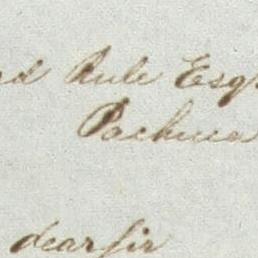 nd Rule Esq
Pachuca
dear sir